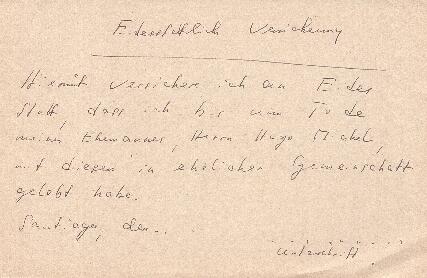 Eidesstattlich Versicherung
Hiermit versichere ich an Eides
Statt, dass ich bis zum Tode
meines Ehemannes, Herrn Hugo
mit diesem in ehelicher Gemeinschaft
gelebt habe.
Santiago, den..
Unterschrift